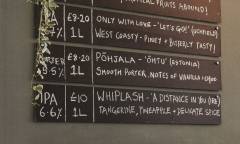 TROPICAL FRUITS ABOUND!
£8.20 ONLY WITH LOVE - 'LET'S GO!' (UCKFIELD)
1L WEST COAST - PINEY + BITTERLY TASTY!
PORTER £8.20 PÕHJALA - 'ÖHTU' (ESTONIA)
5.5% 1L SMOOTH PORTER, NOTES OF VANILLA +
IPA £10 WHIPLASH - 'A DISTANCE IN YOU' (IRE)
6.6% 1L TANGERINE, PINEAPPLE + DELICATE SPICE